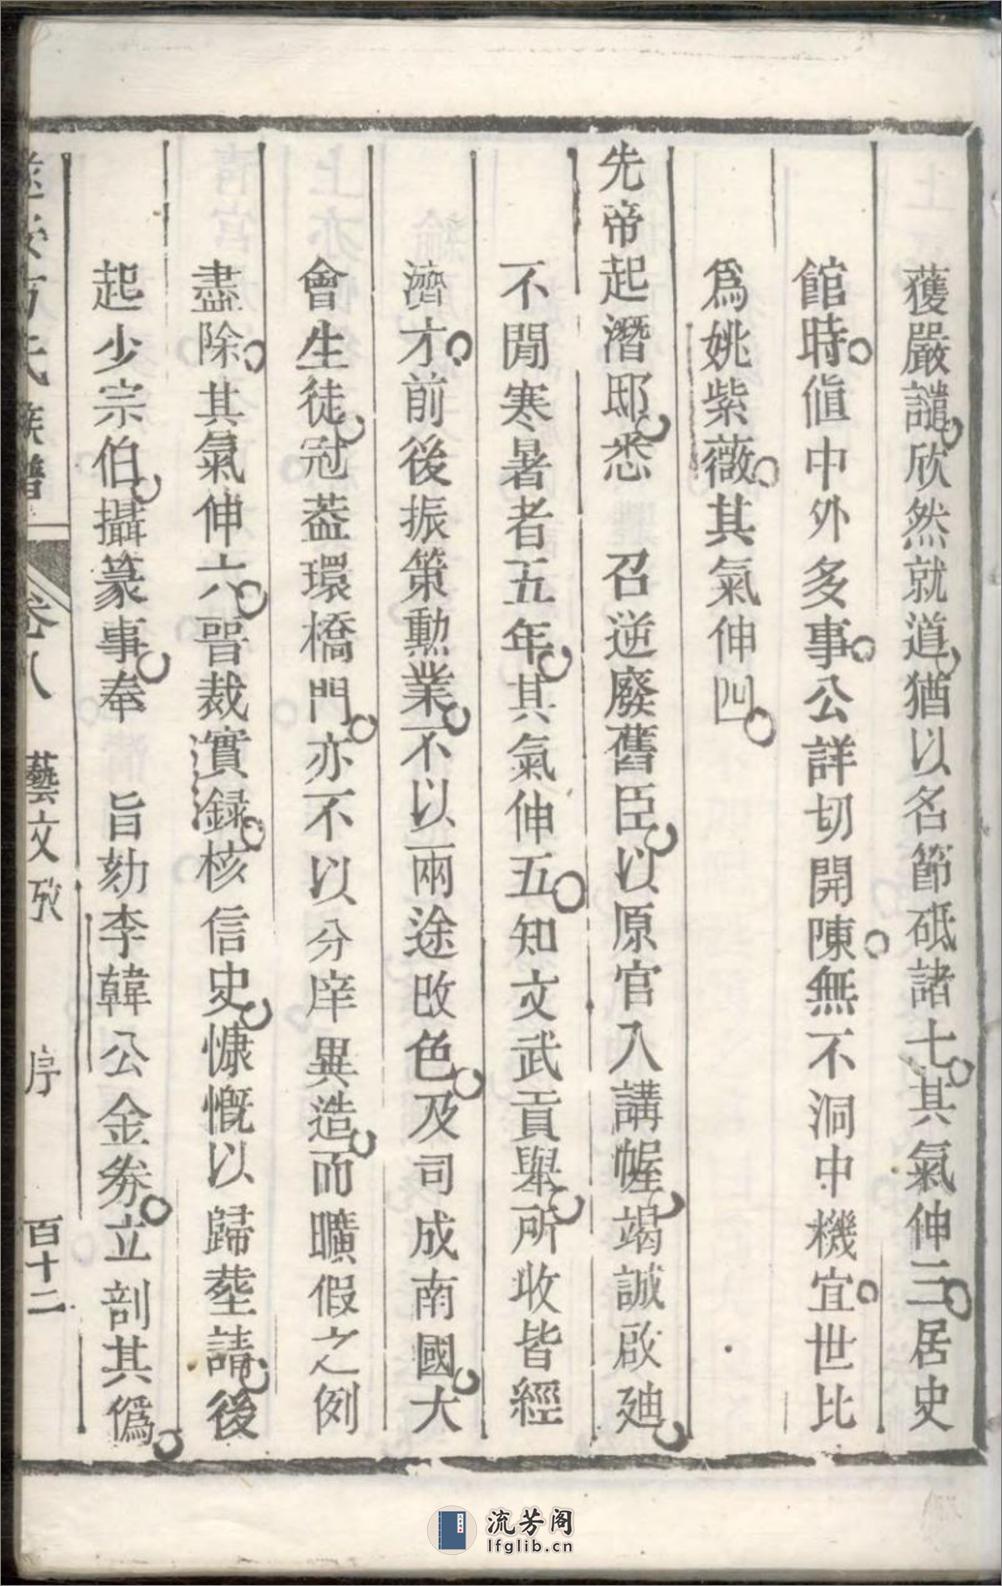 獲嚴譴欣然就道猶以名節砥諸士其氣伸三居史
館時値中外多事公詳切開陳無不洞中機宜世比
爲姚紫薇其氣伸四
先帝起潛邸悉 召逆廢舊臣以原官入講幄竭誠啟廸
不閒寒暑者五年其氣伸五知文武貢舉所收皆經
濟才前後振策勳業不以兩途改色及司成南國大
會生徒冠葢環橋門亦不以分庠異造而曠假之例
盡除其氣伸六晋裁實録核信史慷慨以歸塟請後
起少宗伯攝篆事奉 旨劾李韓公金券立剖其僞
方氏族譜 卷八 藝文攷 序 百十二
流芳阁
lfglib.cn